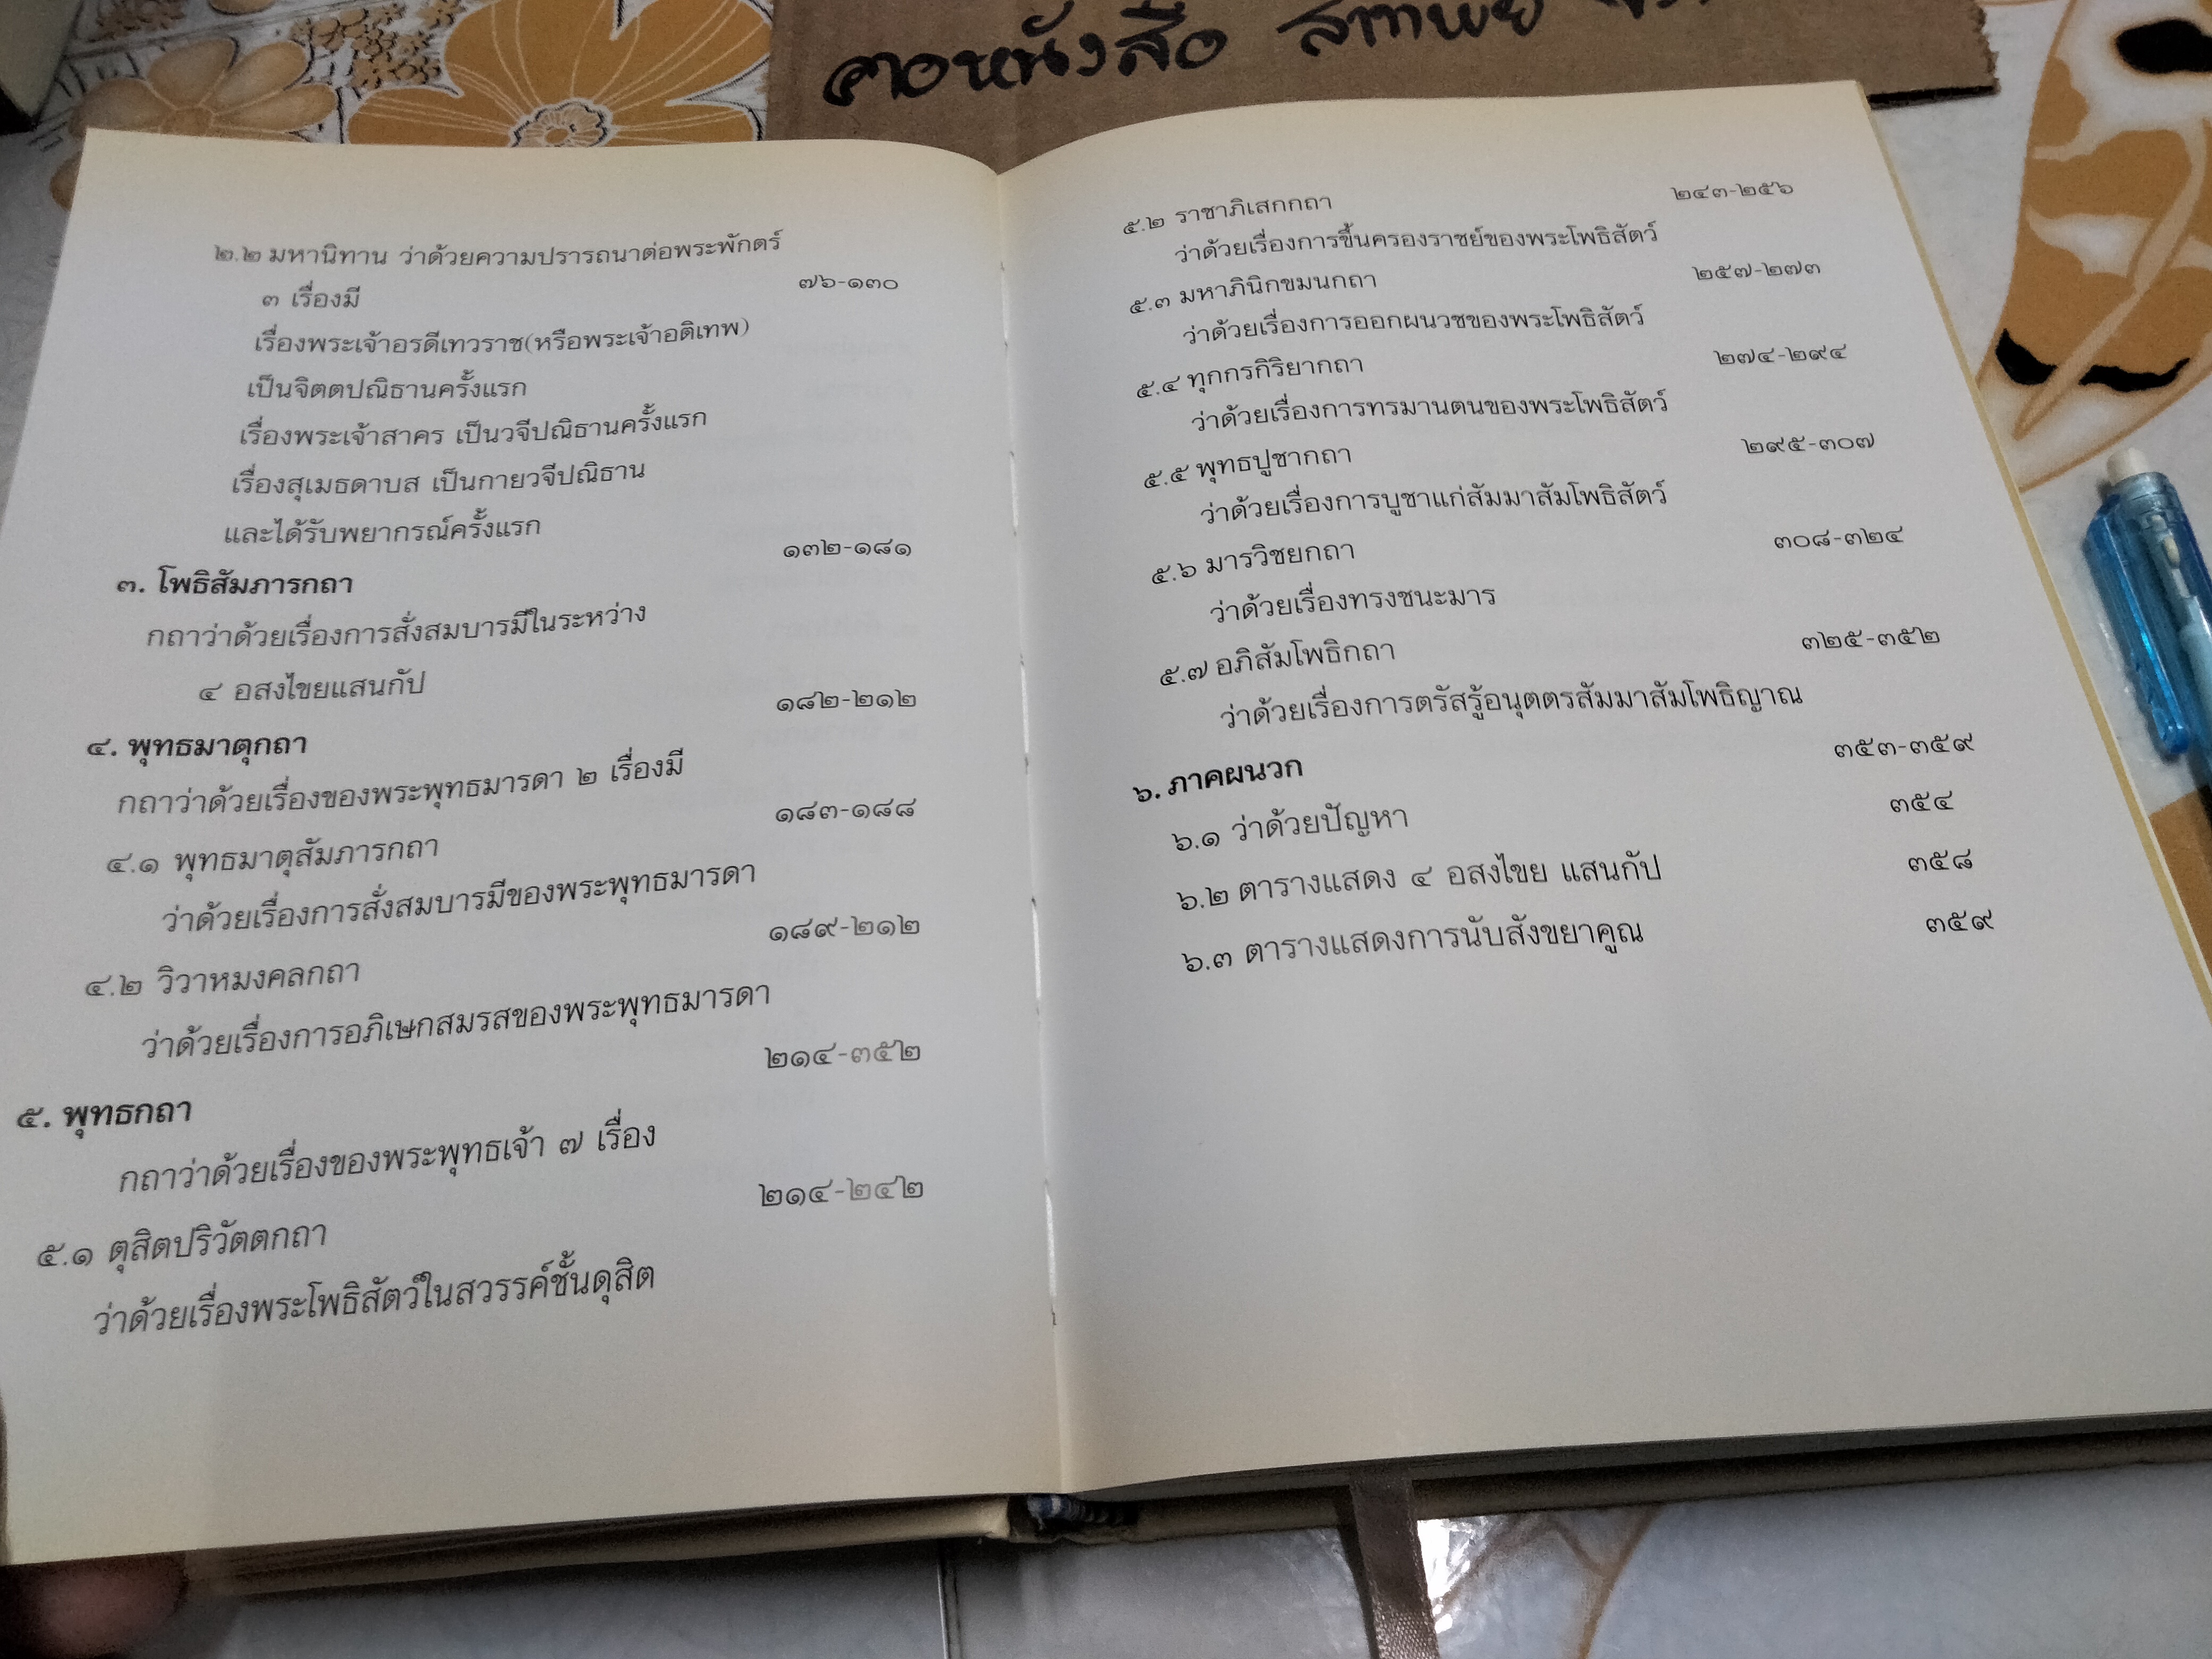 คาอหนังสือ
๒.๒ มหานิทาน ว่าด้วยความปรารถนาต่อพระพักตร์
๓ เรื่องมี ๗๖-๑๓๐
เรื่องพระเจ้าอรดีเทวราช(หรือพระเจ้าอติเทพ)
เป็นจิตตปณิธานครั้งแรก
เรื่องพระเจ้าสาคร เป็นวจีปณิธานครั้งแรก
เรื่องสุเมธดาบส เป็นกายวจีปณิธาน
และได้รับพยากรณ์ครั้งแรก
๓. โพธิสัมภารกถา ๑๓๒-๑๘๑
กถาว่าด้วยเรื่องการสั่งสมบารมีในระหว่าง
๔ อสงไขยแสนกัป
๔. พุทธมาตุกถา ๑๘๒-๒๑๒
กถาว่าด้วยเรื่องของพระพุทธมารดา ๒ เรื่องมี
๔.๑ พุทธมาตุสัมภารกถา ๑๘๓-๑๘๘
ว่าด้วยเรื่องการสั่งสมบารมีของพระพุทธมารดา
๔.๒ วิวาหมงคลกถา ๑๘๙-๒๑๒
ว่าด้วยเรื่องการอภิเษกสมรสของพระพุทธมารดา
๕. พุทธกถา ๒๑๔-๓๕๒
กถาว่าด้วยเรื่องของพระพุทธเจ้า ๗ เรื่อง
๕.๑ ตุสิตปริวัตตกถา ๒๑๔-๒๔๒
ว่าด้วยเรื่องพระโพธิสัตว์ในสวรรค์ชั้นดุสิต
๕.๒ ราชาภิเสกกถา ๒๔๓-๒๕๖
ว่าด้วยเรื่องการขึ้นครองราชย์ของพระโพธิสัตว์
๕.๓ มหาภินิกขมนกถา ๒๕๗-๒๗๓
ว่าด้วยเรื่องการออกผนวชของพระโพธิสัตว์
๕.๔ ทุกกรกิริยากถา ๒๗๔-๒๙๔
ว่าด้วยเรื่องการทรมานตนของพระโพธิสัตว์
๕.๕ พุทธปูชากถา ๒๙๕-๓๐๗
ว่าด้วยเรื่องการบูชาแก่สัมมาสัมโพธิสัตว์
๕.๖ มารวิชยกถา ๓๐๘-๓๒๔
ว่าด้วยเรื่องทรงชนะมาร
๕.๗ อภิสัมโพธิกถา ๓๒๕-๓๕๒
ว่าด้วยเรื่องการตรัสรู้อนุตตรสัมมาสัมโพธิญาณ
๖. ภาคผนวก ๓๕๓-๓๕๙
๖.๑ ว่าด้วยปัญหา ๓๕๔
๖.๒ ตารางแสดง ๔ อสงไขย แสนกัป ๓๕๘
๖.๓ ตารางแสดงการนับสังขยาคูณ ๓๕๙